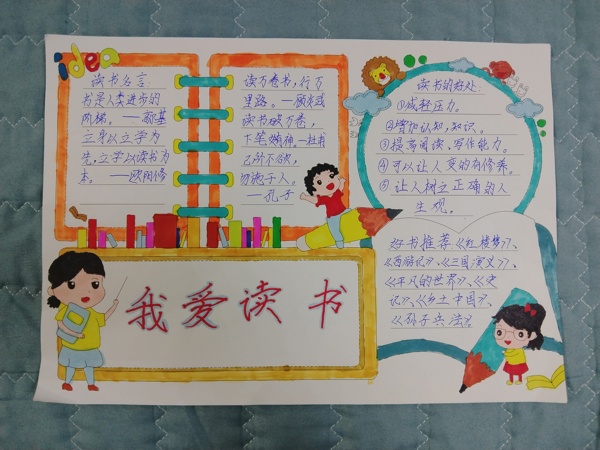 idea
读书名言:
书是人类进步的
阶梯。——
立身以立学为
先,立学以读书为
本。——欧阳修
读万卷书,行万
里路。——顾炎武
读书破万卷,
下笔 神。—杜甫
己所不欲,
勿施于人。
——孔子
读书的好处:
①减轻压力。
②增加认知,知识。
③提高阅读、写作能力。
④可以让人变的有修养。
⑤让人树立正确的人
生观。
好书推荐《红楼梦》、
《西游记》、《三国演义》、
《平凡的世界》、《史
记》、《乡土中国》、
《孙子兵法》。
我爱读书